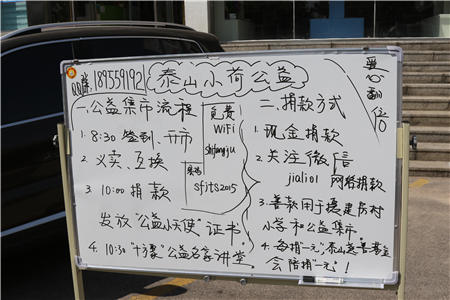 QQ群:189559192
泰山小荷公益
爱心翻位
一.公益集市流程
1. 8:30 签到、开市
2. 义卖、互换
3. 10:00 捐款
发放"公益小天使"证书
4. 10:30 "十方缘"公益名家讲堂.
免费
WiFi
shifangju
密码
sfjts2015
二.捐款方式
1. 现金捐款
2. 关注微信
jiali01 网络捐款
3. 善款用于 建房村
小学和公益集市.
4. 每捐"一元",泰山慈善基金
会陪捐"一元"!